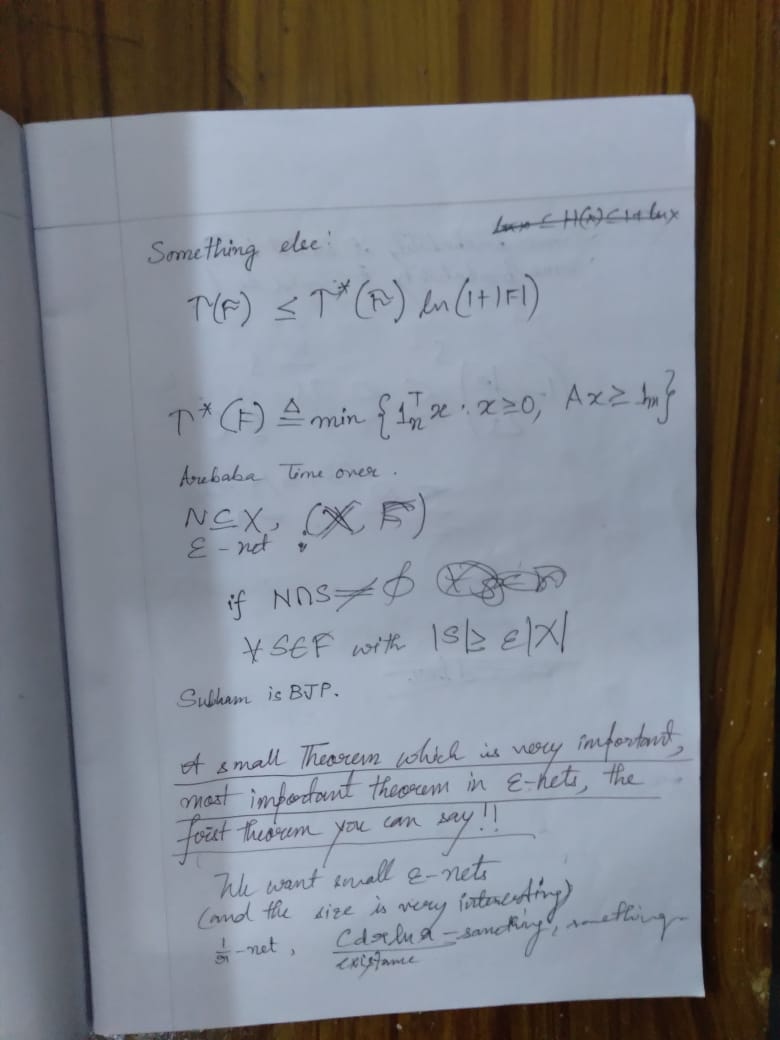 ln x ≤ H(x) ≤ 1+ ln x
Something else:
τ(F) ≤ τ*(F) ln(1+|F|)
τ*(F) ≜ min {1ₙᵀ x : x≥0, Ax ≥ 1ₘ}
Arubaba Time over.
N⊆X, (X, F)
ε-net :
if N∩S≠∅
∀ S∈F with |S|≥ ε|X|
Subham is BJP.
A small Theorem which is very important,
most important theorem in ε-nets, the
first theorem you can say!!
We want small ε-nets
(and the size is very interesting)
1/r-net, Cdr ln r - something, something
existance